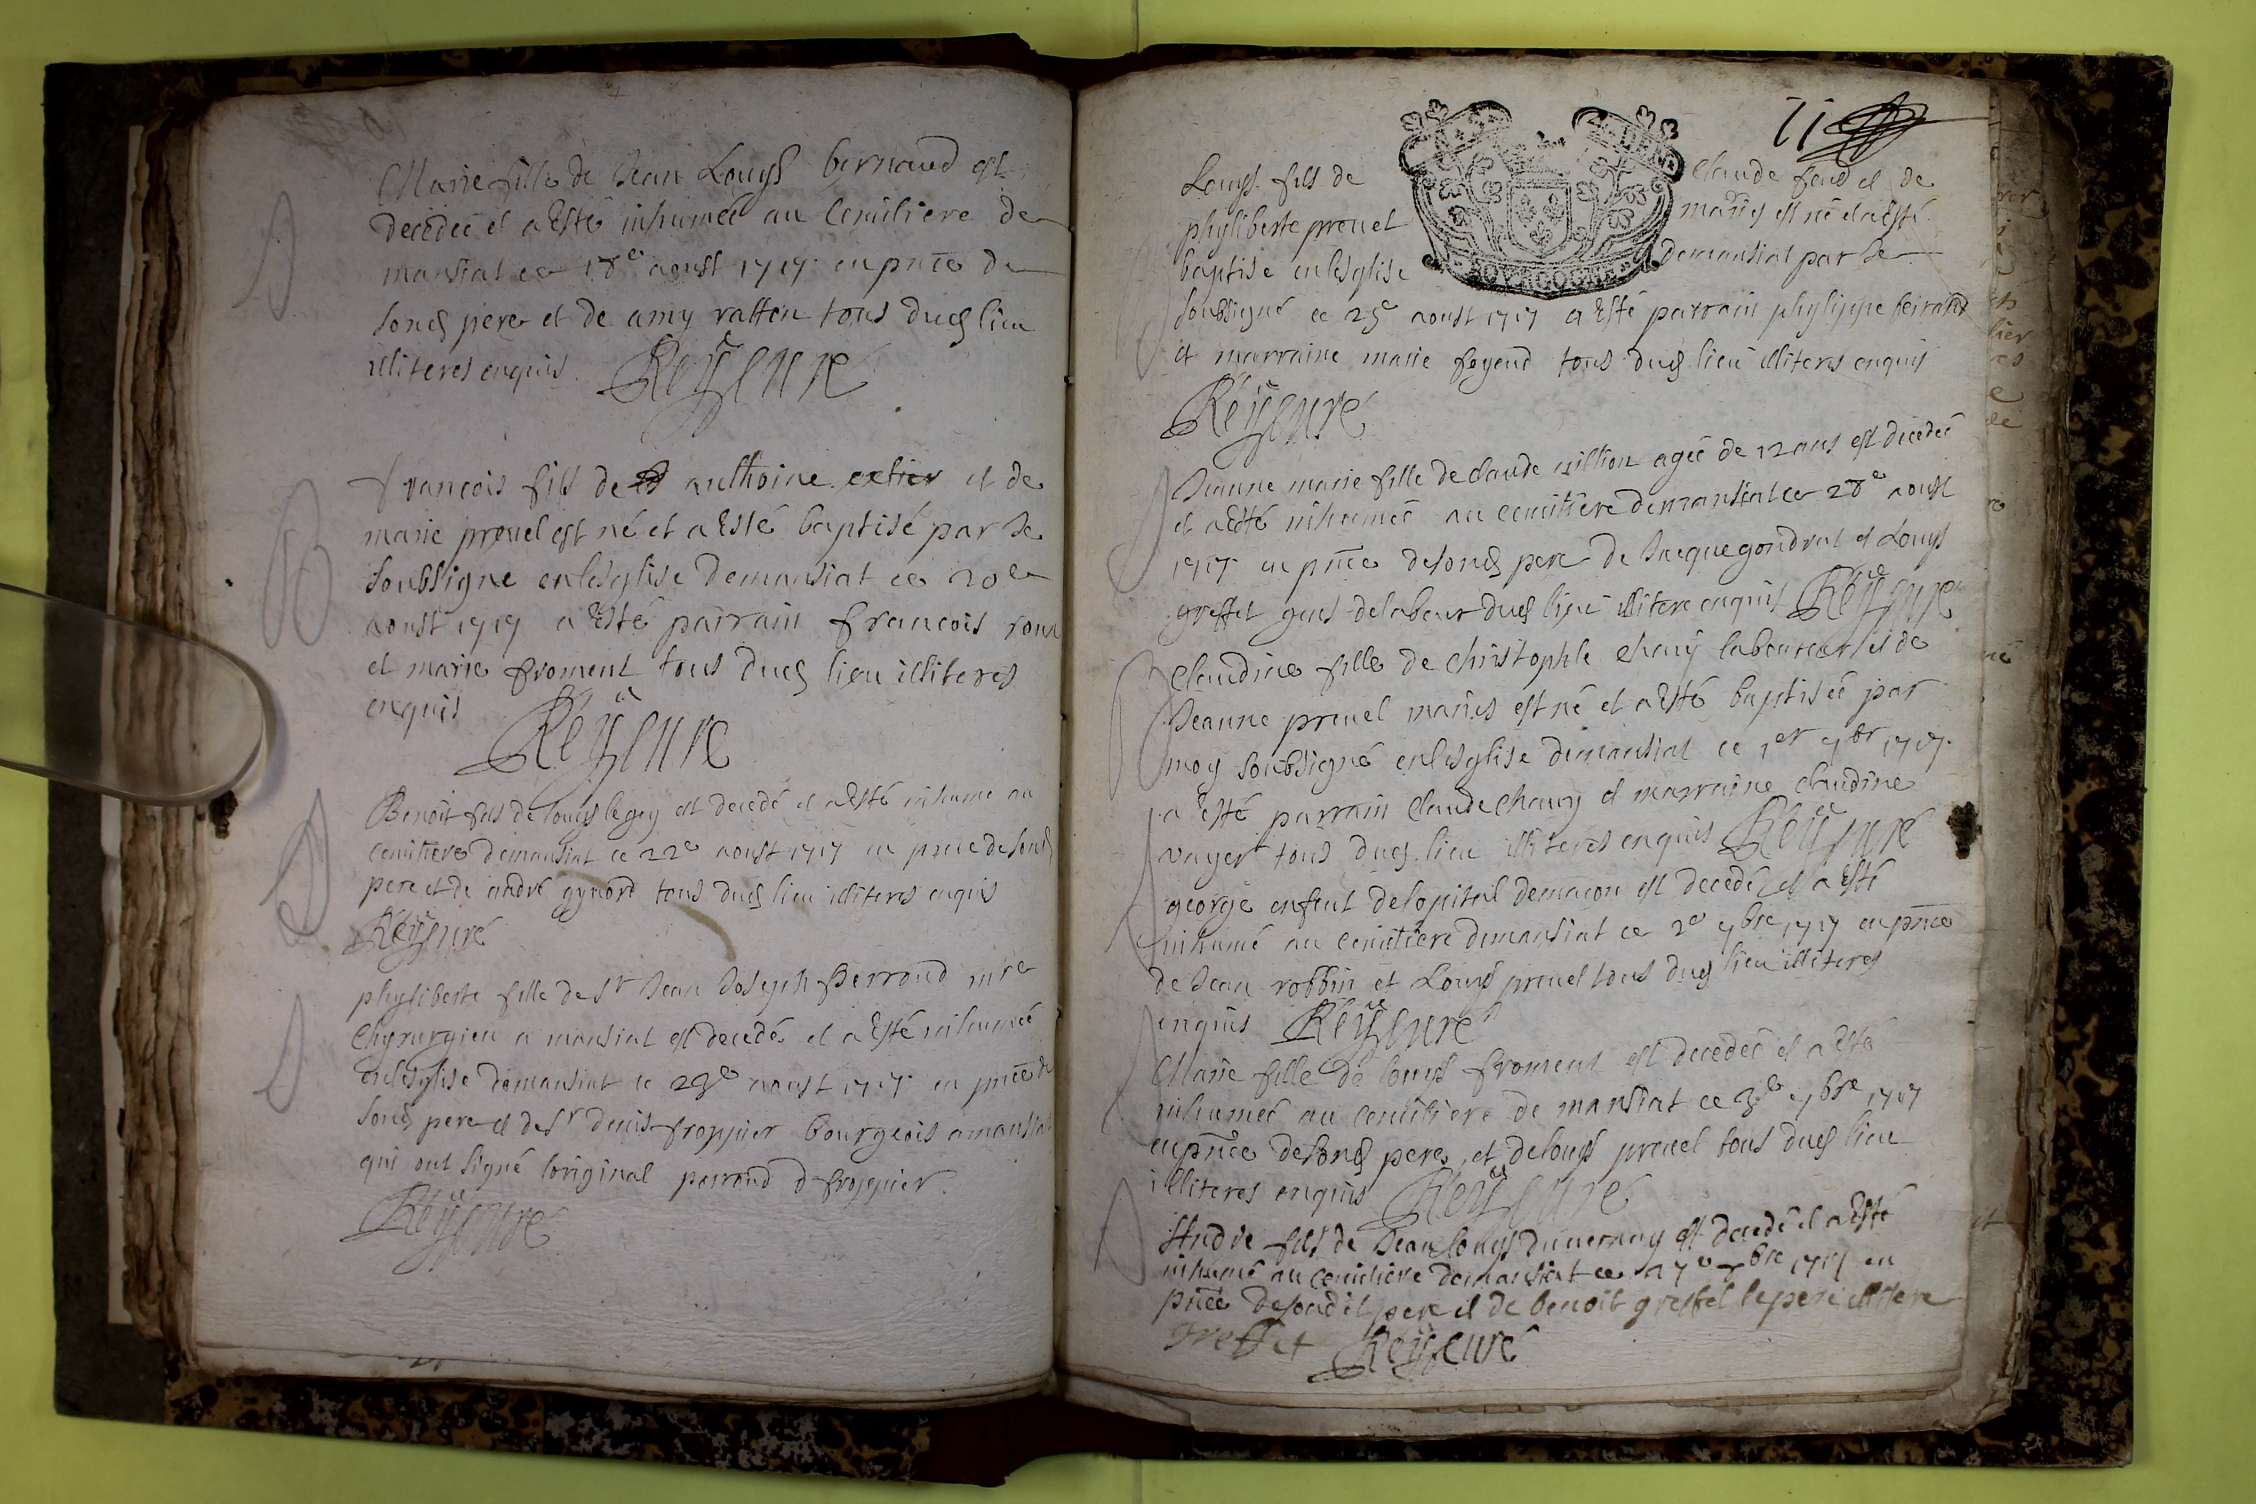 Marie fille de Jean Louys bernaud est
decedeé et a Esté inhumeé au Cemitiere de
mansiat ce 18e aoust 1717 en pnce de
sond pere et de amy ratton tous dud lieu
illiteres enquis Reÿ Cure
françois fils de anthoine et de
marie preuel est né et a Esté baptisé par Je
soubsigne en lesglise de mansiat ce 20e
aoust 1717 a Esté parrain françois roux
et marie froment tous dud lieu illiteres
enquis
Reÿ Cure
Benoit fils de Louys legey est decedé et a Esté inhumé au
cemitiere de mansiat ce 22e aoust 1717 en pnce de sond
pere et de andré gynord tous dud lieu illiteres enquis
Reÿ Curé
phyliberte fille de Sr Jean Joseph Perroud mre
Chyrurgien a mansiat est decedé et a Esté inhumeé
en lesglise de mansiat ce 23e aoust 1717 en pnce de
sond pere et de Sr denis froppier bourgeois a mansiat
qui ont signé loriginal perroud d froppier
Reÿ Curé
71
Louys fils de Claude feud et de
phyliberte preuel mariés est né et a Esté
baptisé en lesglise de mansiat par Je
BOVRGOGNE
soubsigné ce 25e aoust 1717 a Esté parrain phylippe
et marraine marie feyeud tous dud lieu illiteres enquis
Reÿ Curé
Jeanne marie fille de claude million ageé de 12 ans est decedeé
et a Esté inhumeé au cemitiere de mansiat ce 28e aoust
1717 en pnce de sond pere de Jacque gondrat et Louys
greffet gens de labeur dud lieu illitere enquis Reÿ Cure
Claudine fille de Christophle Chauy laboureur et de
Jeanne preuel mariés est né et a Esté baptiseé par
moy soubsigné en lesglise de mansiat ce 1er 7br 1717
a Esté parrain Claude Chauy et marraine Claudine
vuyer tous dud lieu illiteres enquis Reÿ Curé
george enfent de lopital de macon est decedé et a Esté
inhumé au cemitiere de mansiat ce 2e 7bre 1717 en pnce
de Jean robbin et Louys preuel tous dud lieu illiteres
enquis Reÿ Curé
Marie fille de louys froment est decedeé et a Esté
inhumeé au cemitiere de mansiat ce 3e 7bre 1717
en pnce de sond pere et de louys preuel tous dud lieu
illiteres enquis Reÿ Curé
Andre fils de Jean louys duuernay est decedé et a Esté
inhumé au cemitiere de mansiat ce 17e 7bre 1717 en
pnce de sondit pere et de benoit greffet le pere illitere
Greffet Reÿ Curé